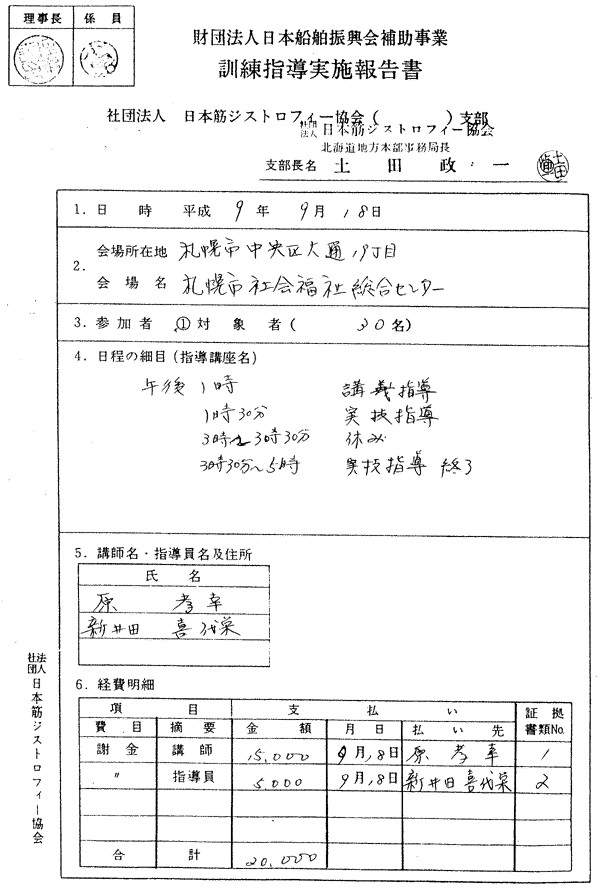 理事長 係員
財団法人日本船舶振興会補助事業
訓練指導実施報告書
社団法人 日本筋ジストロフィー協会( )支部
社団法人 日本筋ジストロフィー協会
北海道地方本部事務局長
支部長名 土田政一
1.日時 平成 9年 9月18日
2.会場所在地 札幌市中央区大通19丁目
会場名 札幌市社会福祉総合センター
3.参加者 ①対象者( 30名)
4.日程の細目(指導講座名)
午後1時 講義指導
1時30分 実技指導
3時~3時30分 休み
3時30分~5時 実技指導 終了
5.講師名・指導員名及住所
氏名
原 孝幸
新井田 喜代栄
6.経費明細
項目 支払い 証拠書類No.
費目 摘要 金額 月日 払い先
謝金 講師 15,000 9月18日 原孝幸 1
〃 指導員 5,000 9月18日 新井田喜代栄 2
合計 20,000
社団法人 日本筋ジストロフィー協会